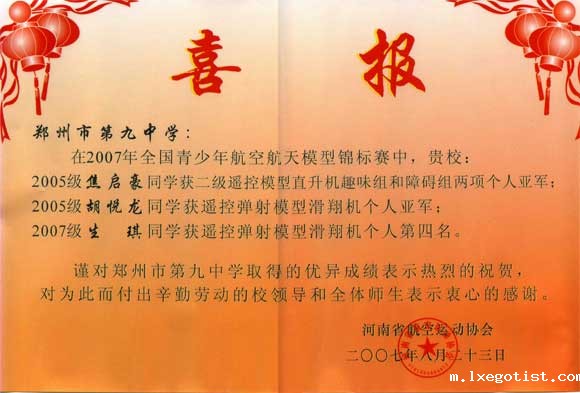 喜报
郑州市第九中学：
在2007年全国青少年航空航天模型锦标赛中，贵校：
2005级焦启豪同学获二级遥控模型直升机趣味组和障碍组两项个人亚军；
2005级胡悦龙同学获遥控弹射模型滑翔机个人亚军；
2007级生琪同学获遥控弹射模型滑翔机个人第四名。
谨对郑州市第九中学取得的优异成绩表示热烈的祝贺，
对为此而付出辛勤劳动的校领导和全体师生表示衷心的感谢。
河南省航空运动协会
二〇〇七年八月二十三日
m.lxegotist.com